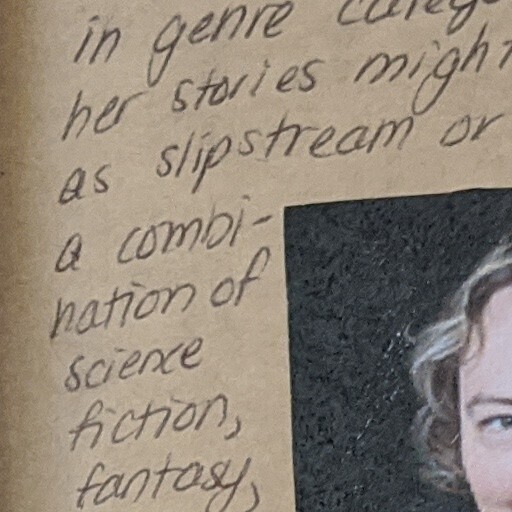 in genre
her stories might
as slipstream or
a combi-
nation of
science
fiction,
fantasy,